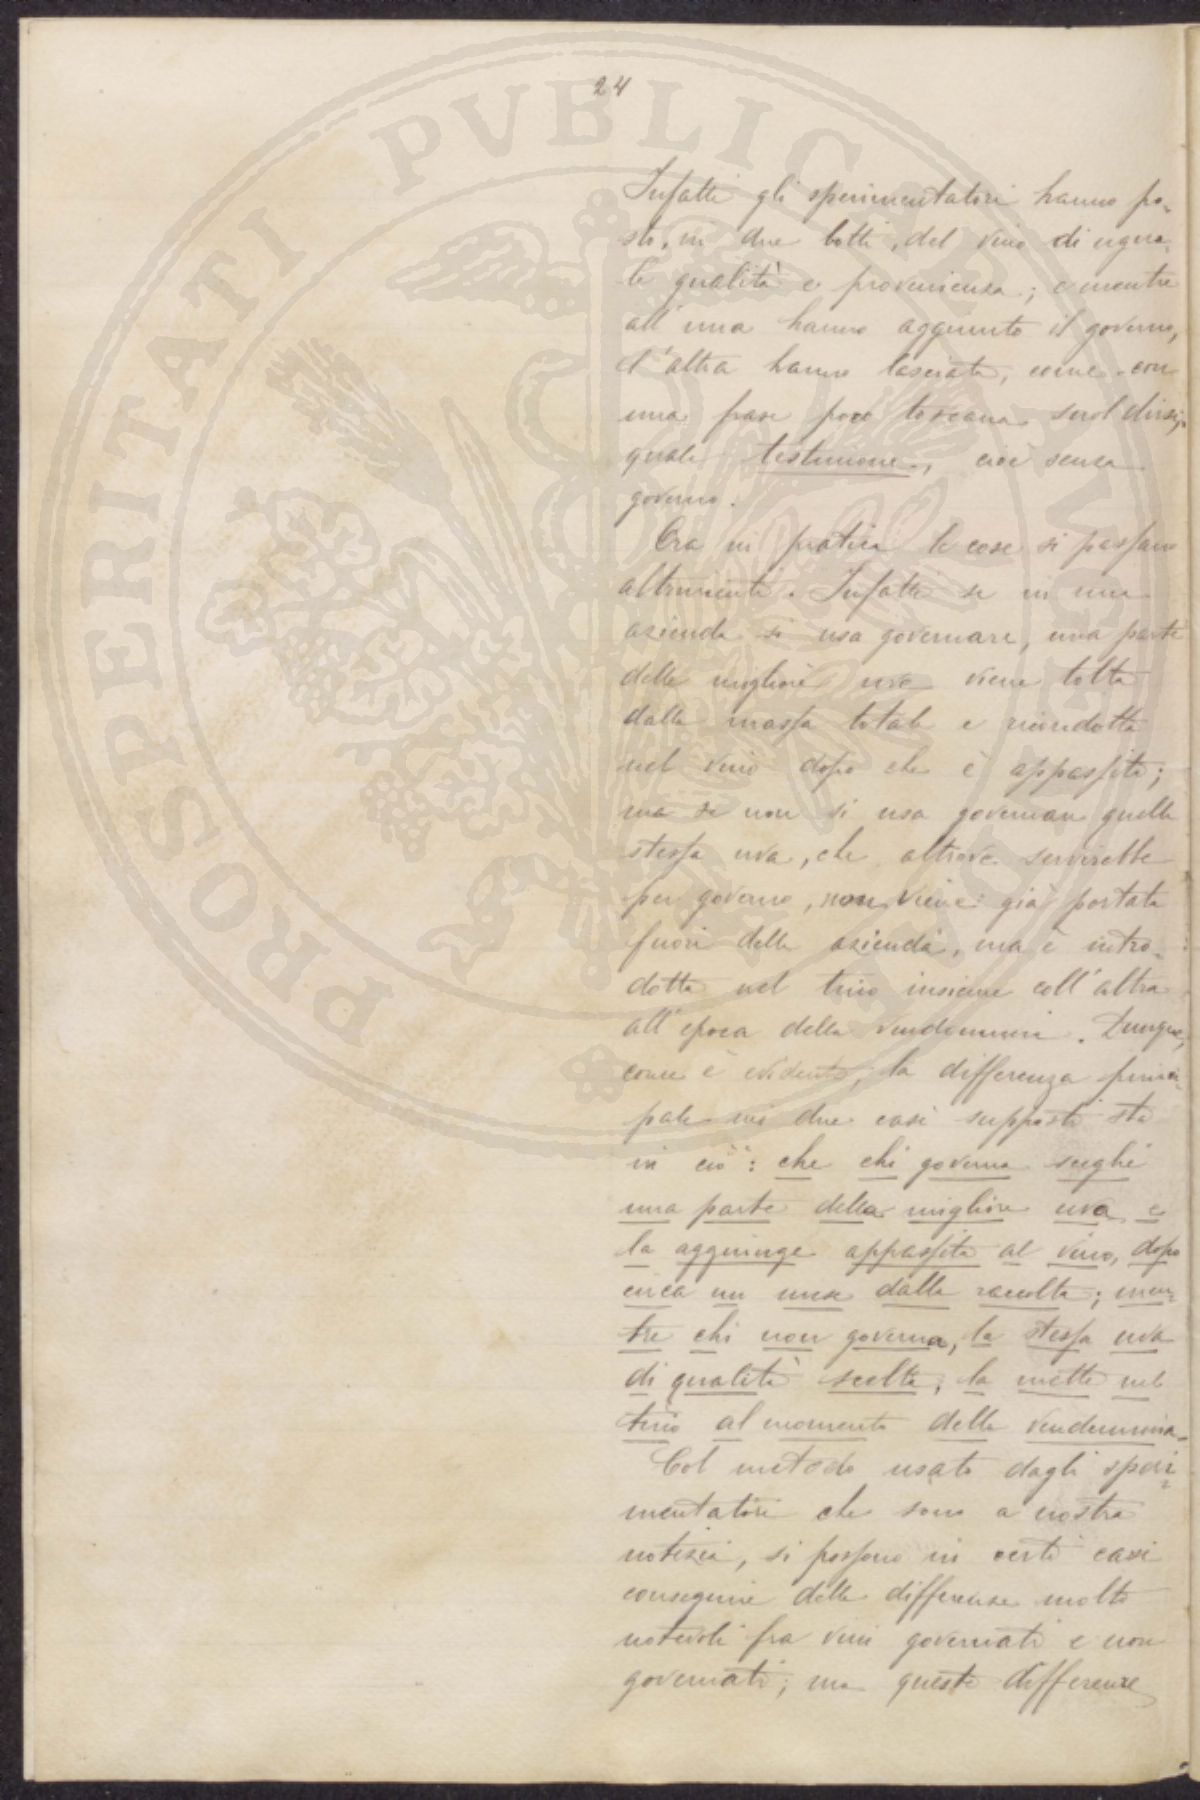 24
PROSPERITATI PVBLICAE AVGENDAE
Infatti gli sperimentatori hanno po-
sto, in due botti, del vino di ugua-
le qualità e provenienza; e mentre
all'una hanno aggiunto il governo,
l'altra hanno lasciata, come con
una frase poco toscana suol dirsi,
quale testimone, cioè senza
governo.
Ora in pratica le cose si passano
altrimenti. Infatti se in una
azienda si usa governare, una parte
della migliore uva viene tolta
dalla massa totale e riindotta
nel vino dopo che è appassita;
ma se non si usa governare quella
stessa uva, che altrove servirebbe
per governo, non viene già portata
fuori della azienda, ma è intro-
dotta nel tino insieme coll'altra
all'epoca della vendemmia. Dunque,
come è evidente, la differenza princi-
pale nei due casi supposti sta
in ciò: che chi governa sceglie
una parte della migliore uva e
la aggiunge appassita al vino, dopo
circa un mese dalla raccolta; men-
tre chi non governa, la stessa uva
di qualità scelta, la mette nel
tino al momento della vendemmia.
Col metodo usato dagli speri-
mentatori che sono a nostra
notizia, si possono in certi casi
conseguire delle differenze molto
notevoli fra vini governati e non
governati; ma queste differenze